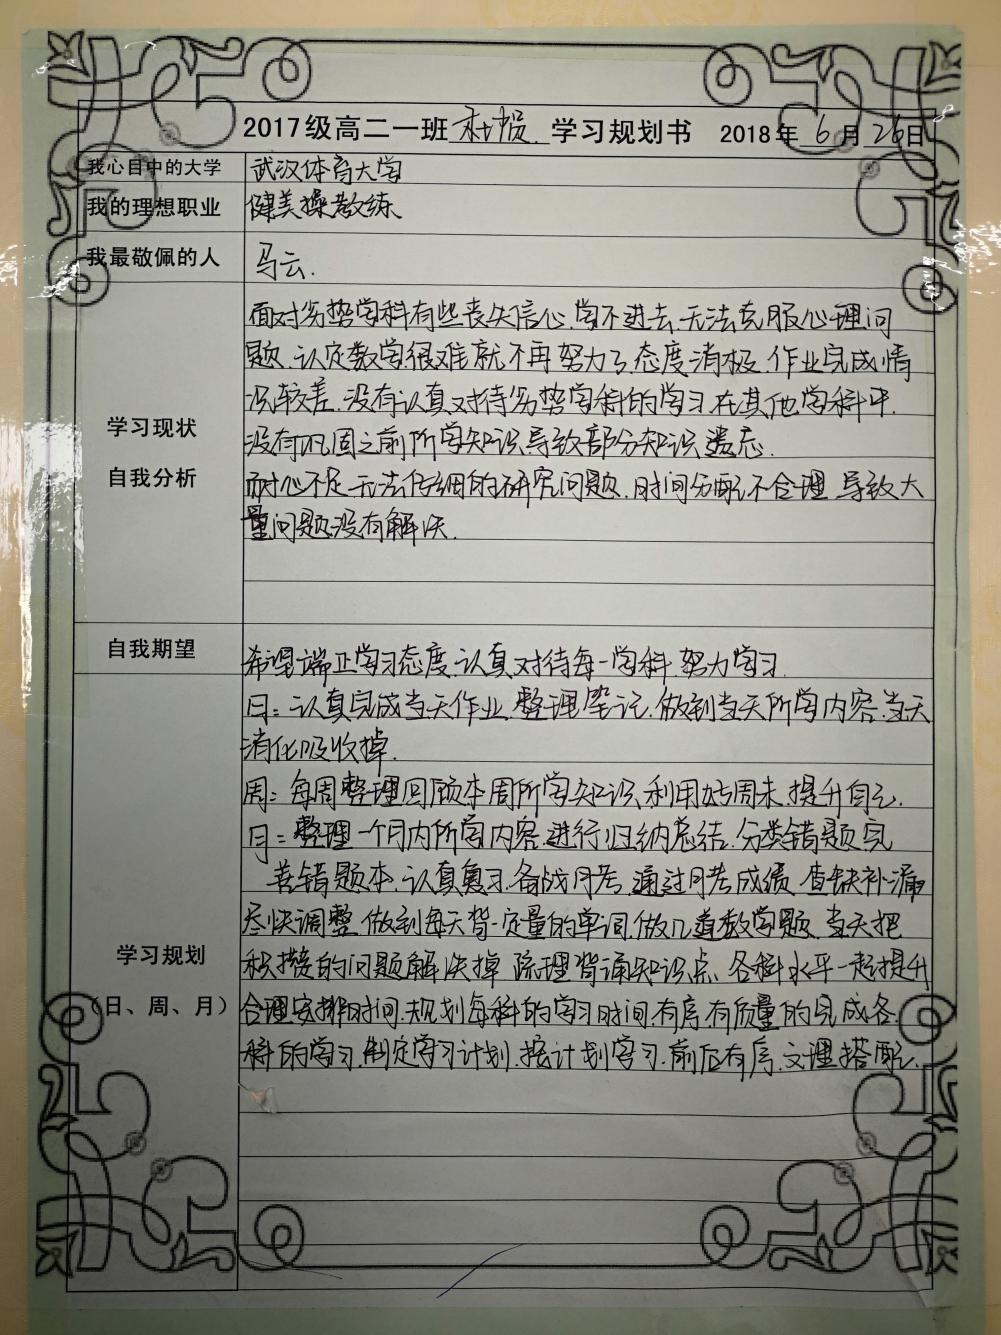 2017级高二一班 学习规划书 2018年 6月 26日
我心目中的大学 武汉体育大学
我的理想职业 健美操教练
我最敬佩的人 马云.
学习现状
自我分析
面对劣势学科有些丧失信心.学不进去.无法克服心理问
题.认定数学很难就不再努力了.态度消极.作业完成情
况较差.没有认真对待劣势学科的学习.在其他学科中.
没有巩固之前所学知识.导致部分知识遗忘.
耐心不足.无法仔细的研究问题.时间分配不合理.导致大
量问题没有解决.
自我期望 希望端正学习态度.认真对待每一学科.努力学习.
学习规划
（日、周、月）
日：认真完成当天作业.整理笔记.做到当天所学内容.当天
消化吸收掉.
周：每周整理回顾本周所学知识.利用好周末.提升自己.
月：整理一个月内所学内容.进行归纳总结.分类错题.完
善错题本.认真复习.备战月考.通过月考成绩.查缺补漏
尽快调整.做到每天背一定量的单词.做几道数学题.当天把
积攒的问题解决掉.梳理背诵知识点.各科水平一起提升
合理安排时间.规划每科的学习时间.有序.有质量的完成各.
科的学习.制定学习计划.按计划学习.前后有序.文理搭配.